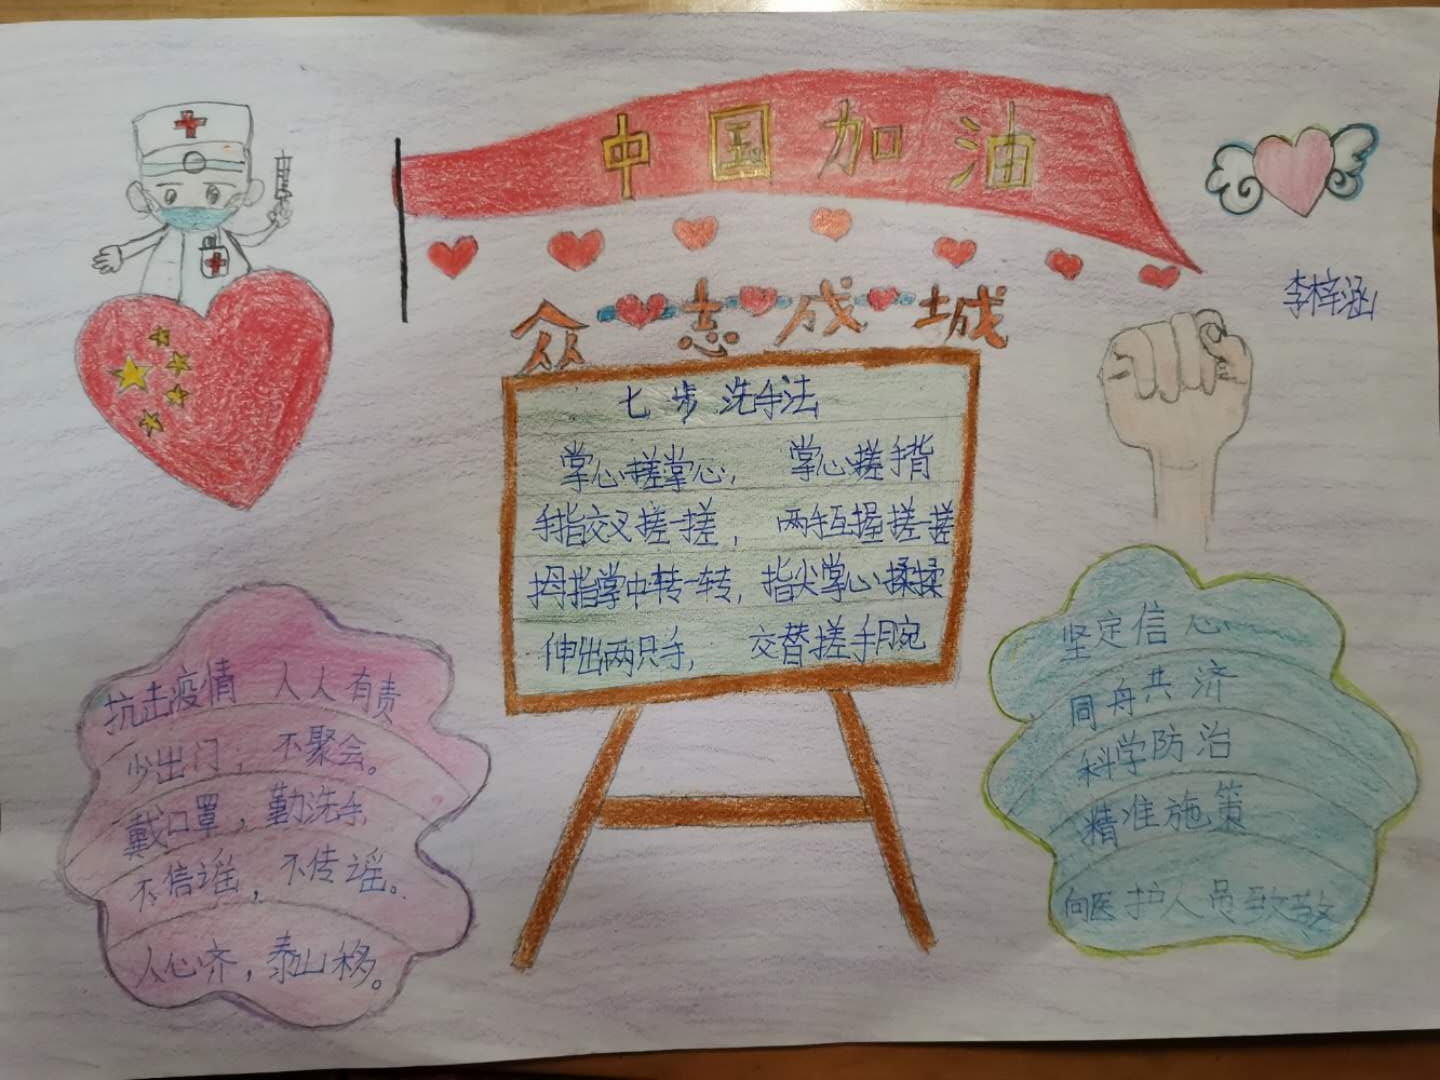 中国加油
众志成城
李梓涵
七步洗手法
掌心搓掌心， 掌心搓手背
手指交叉搓一搓， 两手互握搓一搓
拇指掌中转一转， 指尖掌心揉揉
伸出两只手， 交替搓手腕
抗击疫情 人人有责
少出门， 不聚会。
戴口罩， 勤洗手
不信谣， 不传谣。
人心齐， 泰山移。
坚定信心
同舟共济
科学防治
精准施策
向医护人员致敬